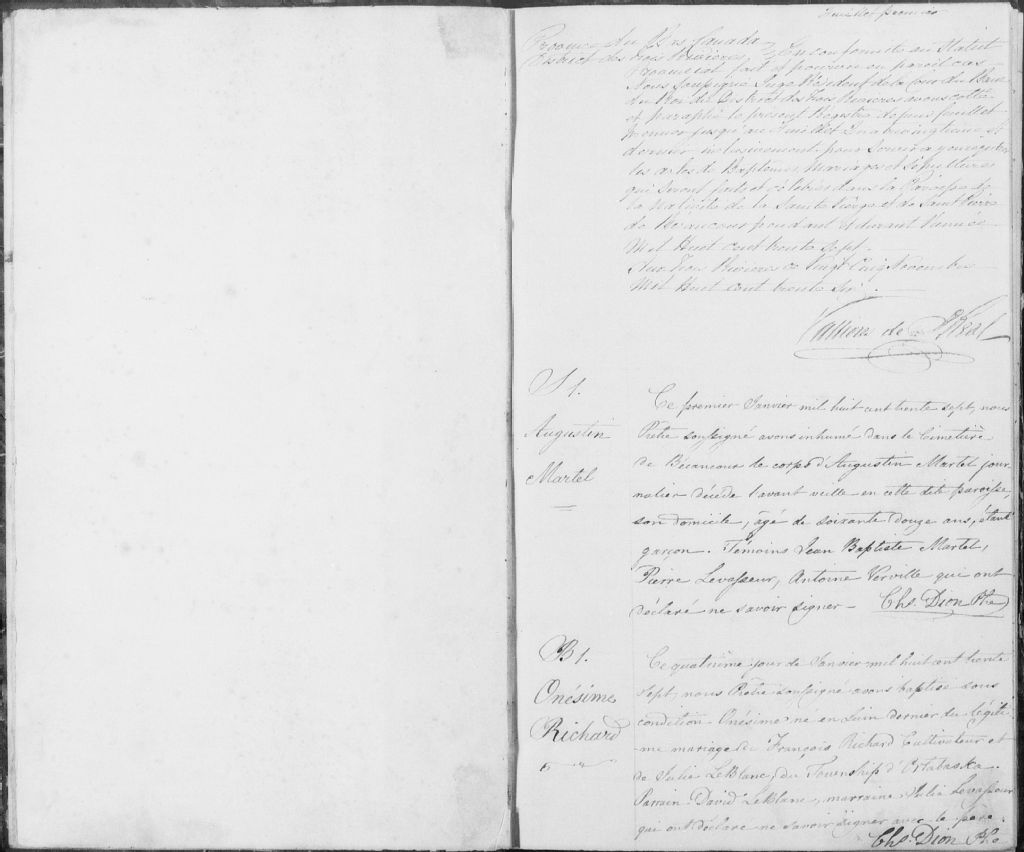 Feuillet premier
Province du Bas Canada
District des Trois Rivières } En conformité au Statut
Provincial fait et pourvu en pareil cas
Nous Soussigné Juge Résident de la Cour du Banc
du Roi du District des Trois Rivieres avons cotté
et paraphé le présent Registre depuis feuillet
premier jusqu'au feuillet et
dernier inclusivement pour servir a
les actes de Baptemes, Mariages et Sépultures
qui seront faits et célébrés dans la Paroisse de
la Nativité de la Sainte Vierge et de Saint Pierre
de Becancour pendant et durant l'année
Mil Huit cent trente sept.
Aux Trois Rivieres ce Vingt Cinq Novembre
Mil Huit cent trente Six.
Vallières de St Réal
S 1.
Augustin
Martel
Ce premier Janvier mil huit cent trente sept, nous
Prêtre soussigné avons inhumé dans le Cimetière
de Bécancour le corps d'Augustin Martel jour-
nalier décédé l'avant veille en cette dite paroisse,
son domicile, âgé de soixante douze ans, étant
garçon. Témoins Jean Baptiste Martel,
Pierre Levasseur, Antoine Verville qui ont
déclaré ne savoir signer - Chs. Dion Ptre
B 1.
Onésime
Richard
Ce quatrième jour de Janvier mil huit cent trente
sept, nous Prêtre soussigné avons baptisé sous
condition Onésime né en Juin dernier du légiti-
me mariage de François Richard Cultivateur et
de Julie LeBlanc, du Township d'Artabaska.
Parrain David LeBlanc, marraine Julie Levasseur
qui ont déclaré ne savoir signer avec le père.
Chs. Dion Ptre